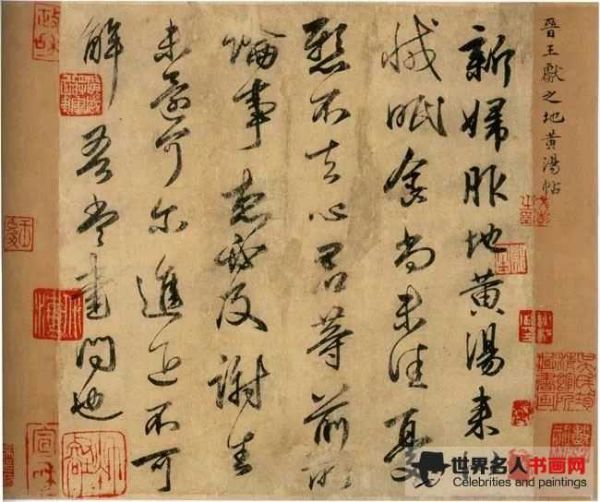 晉王獻之地黄湯帖
新婦服地黄湯来
減眠食尚未佳憂
懸不去心君等前所
論事想必及謝生
未還可尔進退不可
解吾當書問也
政和
宣和
世界名人书画网
Celebrities and paintings